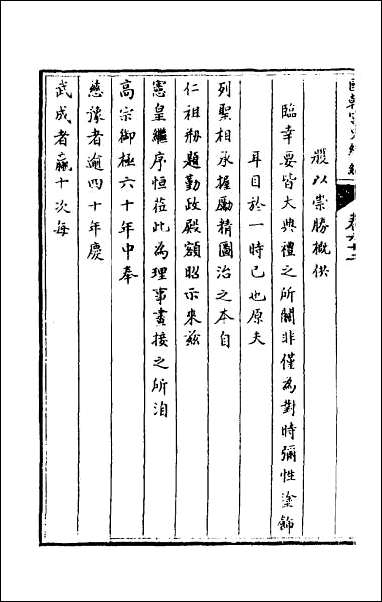 卷六十二
殿以崇勝概供
臨幸要皆大典禮之所關非僅為對時彌性塗飾
耳目於一時已也原夫
列聖相承握勵精圖治之本自
仁祖牓題勤政殿額昭示來茲
憲皇繼序恒莅此為理事晝接之所洎
高宗御極六十年中奉
慈豫者逾四十年慶
武成者贏十次每